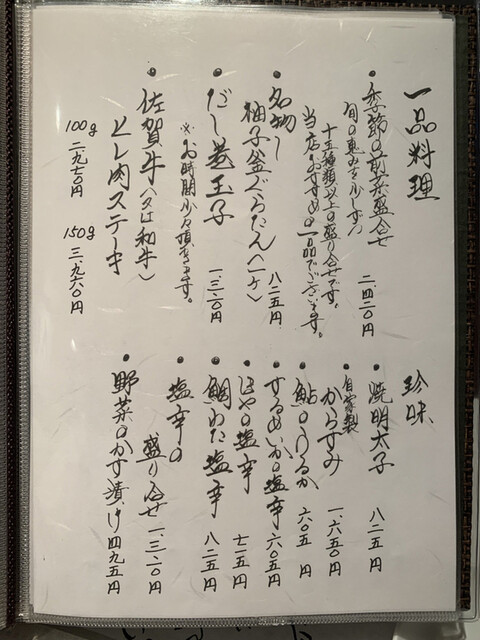 一品料理
・季節の前菜盛合せ 二、四二〇円
旬の恵みを少しずつ
十五種類以上の盛り合せです。
当店おすすめの一品でございます。
・名物
柚子釜ぐらたん(一ケ) 八二五円
・だし巻玉子 一、三二〇円
※お時間少々頂きます。
・佐賀牛(又は和牛)
ヒレ肉ステーキ
100g 二、九七〇円 150g 三、九六〇円
珍味
・焼明太子 八二五円
・自家製
からすみ 一、六五〇円
・鮎のうるか 六〇五円
・するめいかの塩辛 六〇五円
・ほやの塩辛 七一五円
・鯛わた塩辛 八二五円
・塩辛の
盛り合せ 一、三二〇円
・野菜のかす漬け 四九五円